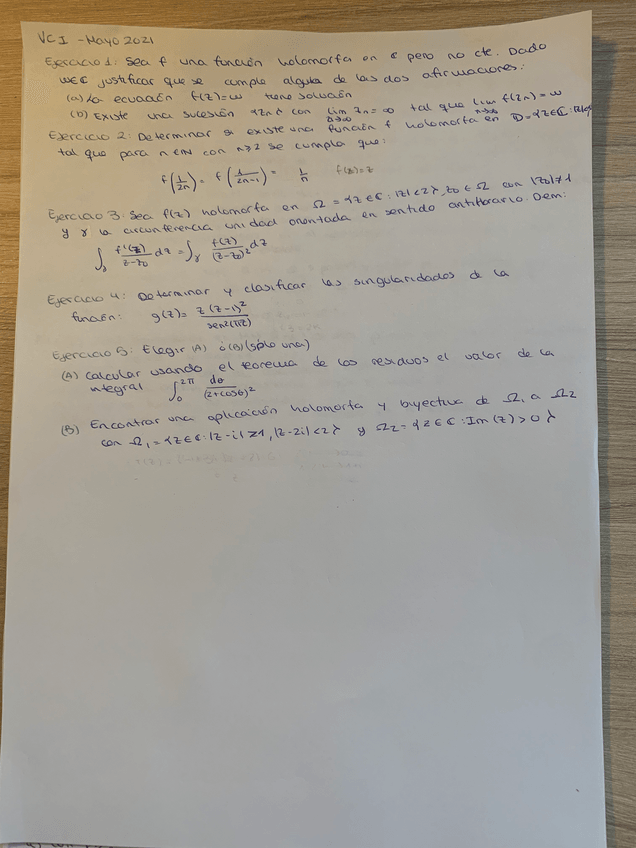 VC I - Mayo 2021
Ejercicio 1: Sea f una función holomorfa en ℂ pero no cte. Dado
w∈ℂ justificar que se cumple alguna de las dos afirmaciones:
(a) La ecuación f(z)=w tiene solución
(b) Existe una sucesión {zn} con lim n→∞ zn = ∞ tal que lim n→∞ f(zn) = w
Ejercicio 2: Determinar si existe una función f holomorfa en D={z∈ℂ:
tal que para n∈ℕ con n≥2 se cumpla que:
f(1/2n) = f(1/(2n-1)) = 1/n f(z)=z
Ejercicio 3: Sea f(z) holomorfa en Ω = {z∈ℂ: |z|<2}, z0 ∈ Ω con |z0|≠1
y γ la circunferencia unidad orientada en sentido antihorario. Dem:
∫γ f'(z)/(z-z0) dz = ∫γ f(z)/(z-z0)² dz
Ejercicio 4: Determinar y clasificar las singularidades de la
función: g(z) = z(z-1)²/sen²(πz)
Ejercicio 5: Elegir (A) ó (B) (sólo una)
(A) Calcular usando el teorema de los residuos el valor de la
integral ∫0 2π dθ/(2+cosθ)²
(B) Encontrar una aplicación holomorfa y biyectiva de Ω1 a Ω2
con Ω1 = {z∈ℂ: |z-i|>1, |z-2i|<2} y Ω2 = {z∈ℂ: Im(z)>0}